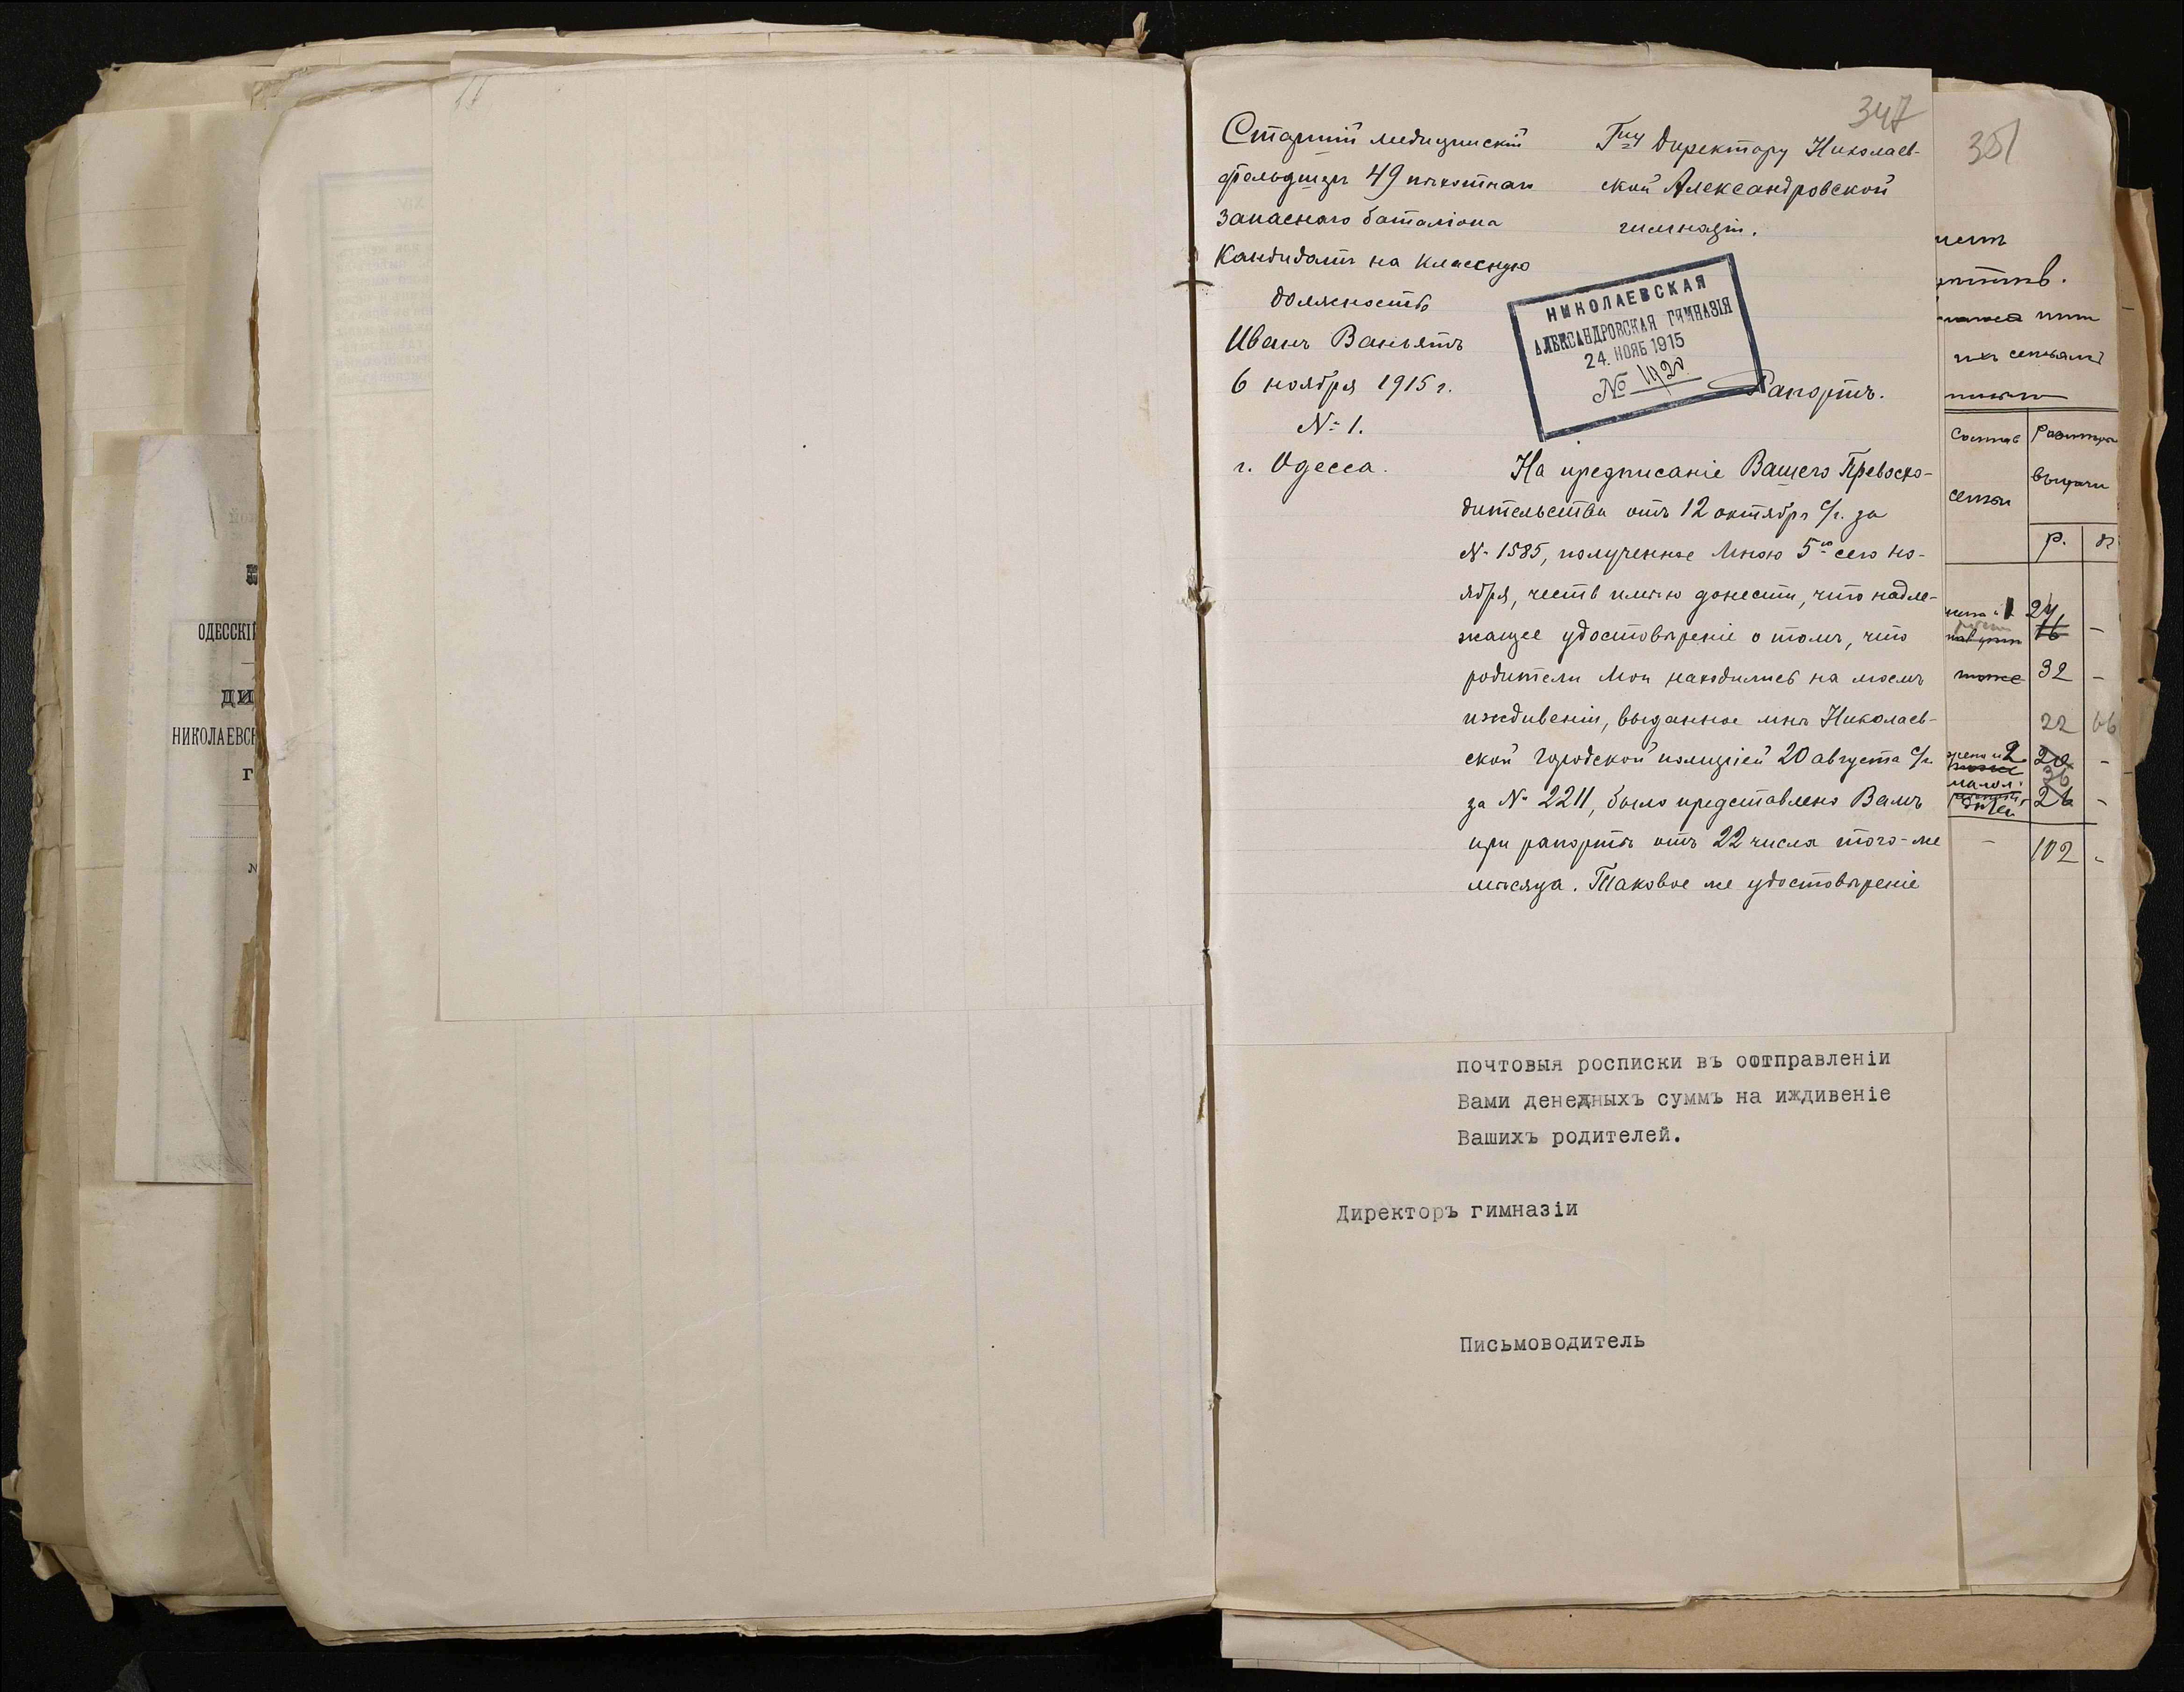 347
Старшій медицинскій
фельдшеръ 49 пѣхотнаго
запаснаго баталіона
Кандидатъ на классную
должность
Иванъ Ваньятъ
6 ноября 1915 г.
№ 1.
г. Одесса.
Гну Директору Николаев-
ской Александровской
гимназіи.
НИКОЛАЕВСКАЯ
АЛЕКСАНДРОВСКАЯ ГИМНАЗІЯ
24. НОЯБ 1915
№ 1920
Рапортъ.
На предписаніе Вашего Превосхо-
дительства отъ 12 октября с/г. за
№ 1585, полученное мною 5го сего но-
ября, честь имѣю донести, что надле-
жащее удостовѣреніе о томъ, что
родители мои находились на моемъ
иждивеніи, выданное мнѣ Николаев-
ской городской полиціей 20 августа с/г.
за № 2211, было представлено Вамъ
при рапортѣ отъ 22 числа того-же
мѣсяца. Таковое же удостовѣреніе
почтовыя росписки въ оотправленіи
Вами денедныхъ суммъ на иждивеніе
Вашихъ родителей.
Директоръ гимназіи
Письмоводитель
ОДЕССКІЙ
ДИ
НИКОЛАЕВСК
Г
№
351
ихъ семьямъ
Составъ
семьи
Размѣръ
выдачи
Р.
к
1 24
16 -
тоже 32 -
22 66
жена и 2 28 -
36
дѣтей 26 -
- 102 -